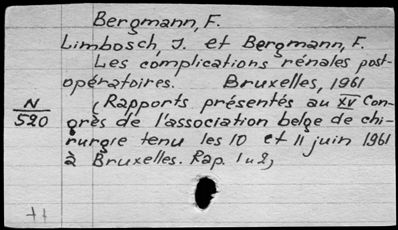 Bergmann, F.
Limbosch, J. et Bergmann, F.
Les complications rénales post-
opératoires. Bruxelles, 1961
N
520
(Rapports présentés au XV Con-
grès de l'association belge de chi-
rurgie tenu les 10 et 11 juin 1961
à Bruxelles. Rap. 1 u 2)